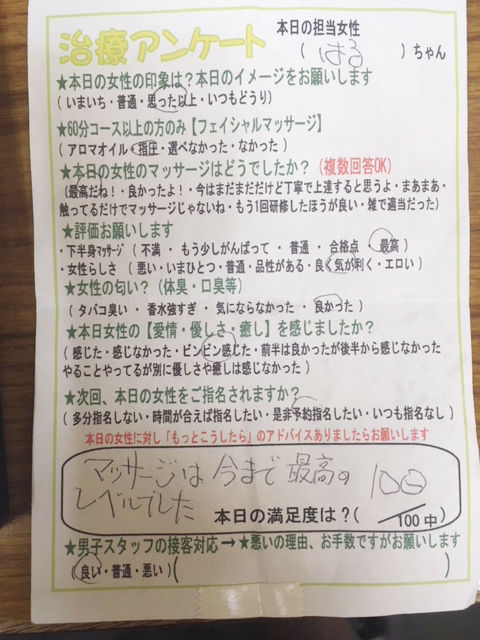 治療アンケート
本日の担当女性
( はる )ちゃん
★本日の女性の印象は？本日のイメージをお願いします
( いまいち・普通・思った以上・いつもどうり)
★60分コース以上の方のみ【フェイシャルマッサージ】
( アロマオイル・指圧・選べなかった・なかった )
★本日の女性のマッサージはどうでしたか？ (複数回答OK)
(最高だね！・良かったよ！・今はまだまだだけど丁寧で上達すると思うよ・まあまあ・
触ってるだけでマッサージじゃないね・もう1回研修したほうが良い・雑で適当だった)
★評価お願いします
・下半身マッサージ ( 不満 ・ もう少しがんばって ・ 普通 ・ 合格点 ・ 最高)
・女性らしさ ( 悪い・いまひとつ・普通・品性がある・良く気が利く・エロい )
★女性の匂い？ (体臭・口臭等)
( タバコ臭い ・ 香水強すぎ ・ 気にならなかった ・ 良かった )
★本日女性の【愛情・優しさ・癒し】を感じましたか？
( 感じた・感じなかった・ビンビン感じた・前半は良かったが後半から感じなかった
やることやってるが別に優しさや癒しは感じなかった )
★次回、本日の女性をご指名されますか？
( 多分指名しない・時間が合えば指名したい・是非予約指名したい・いつも指名なし )
本日の女性に対し「もっとこうしたら」のアドバイスありましたらお願いします
マッサージは今まで最高の
レベルでした
100
本日の満足度は？( /100中)
★男子スタッフの接客対応→★悪いの理由、お手数ですがお願いします
( 良い・普通・悪い ) ( )